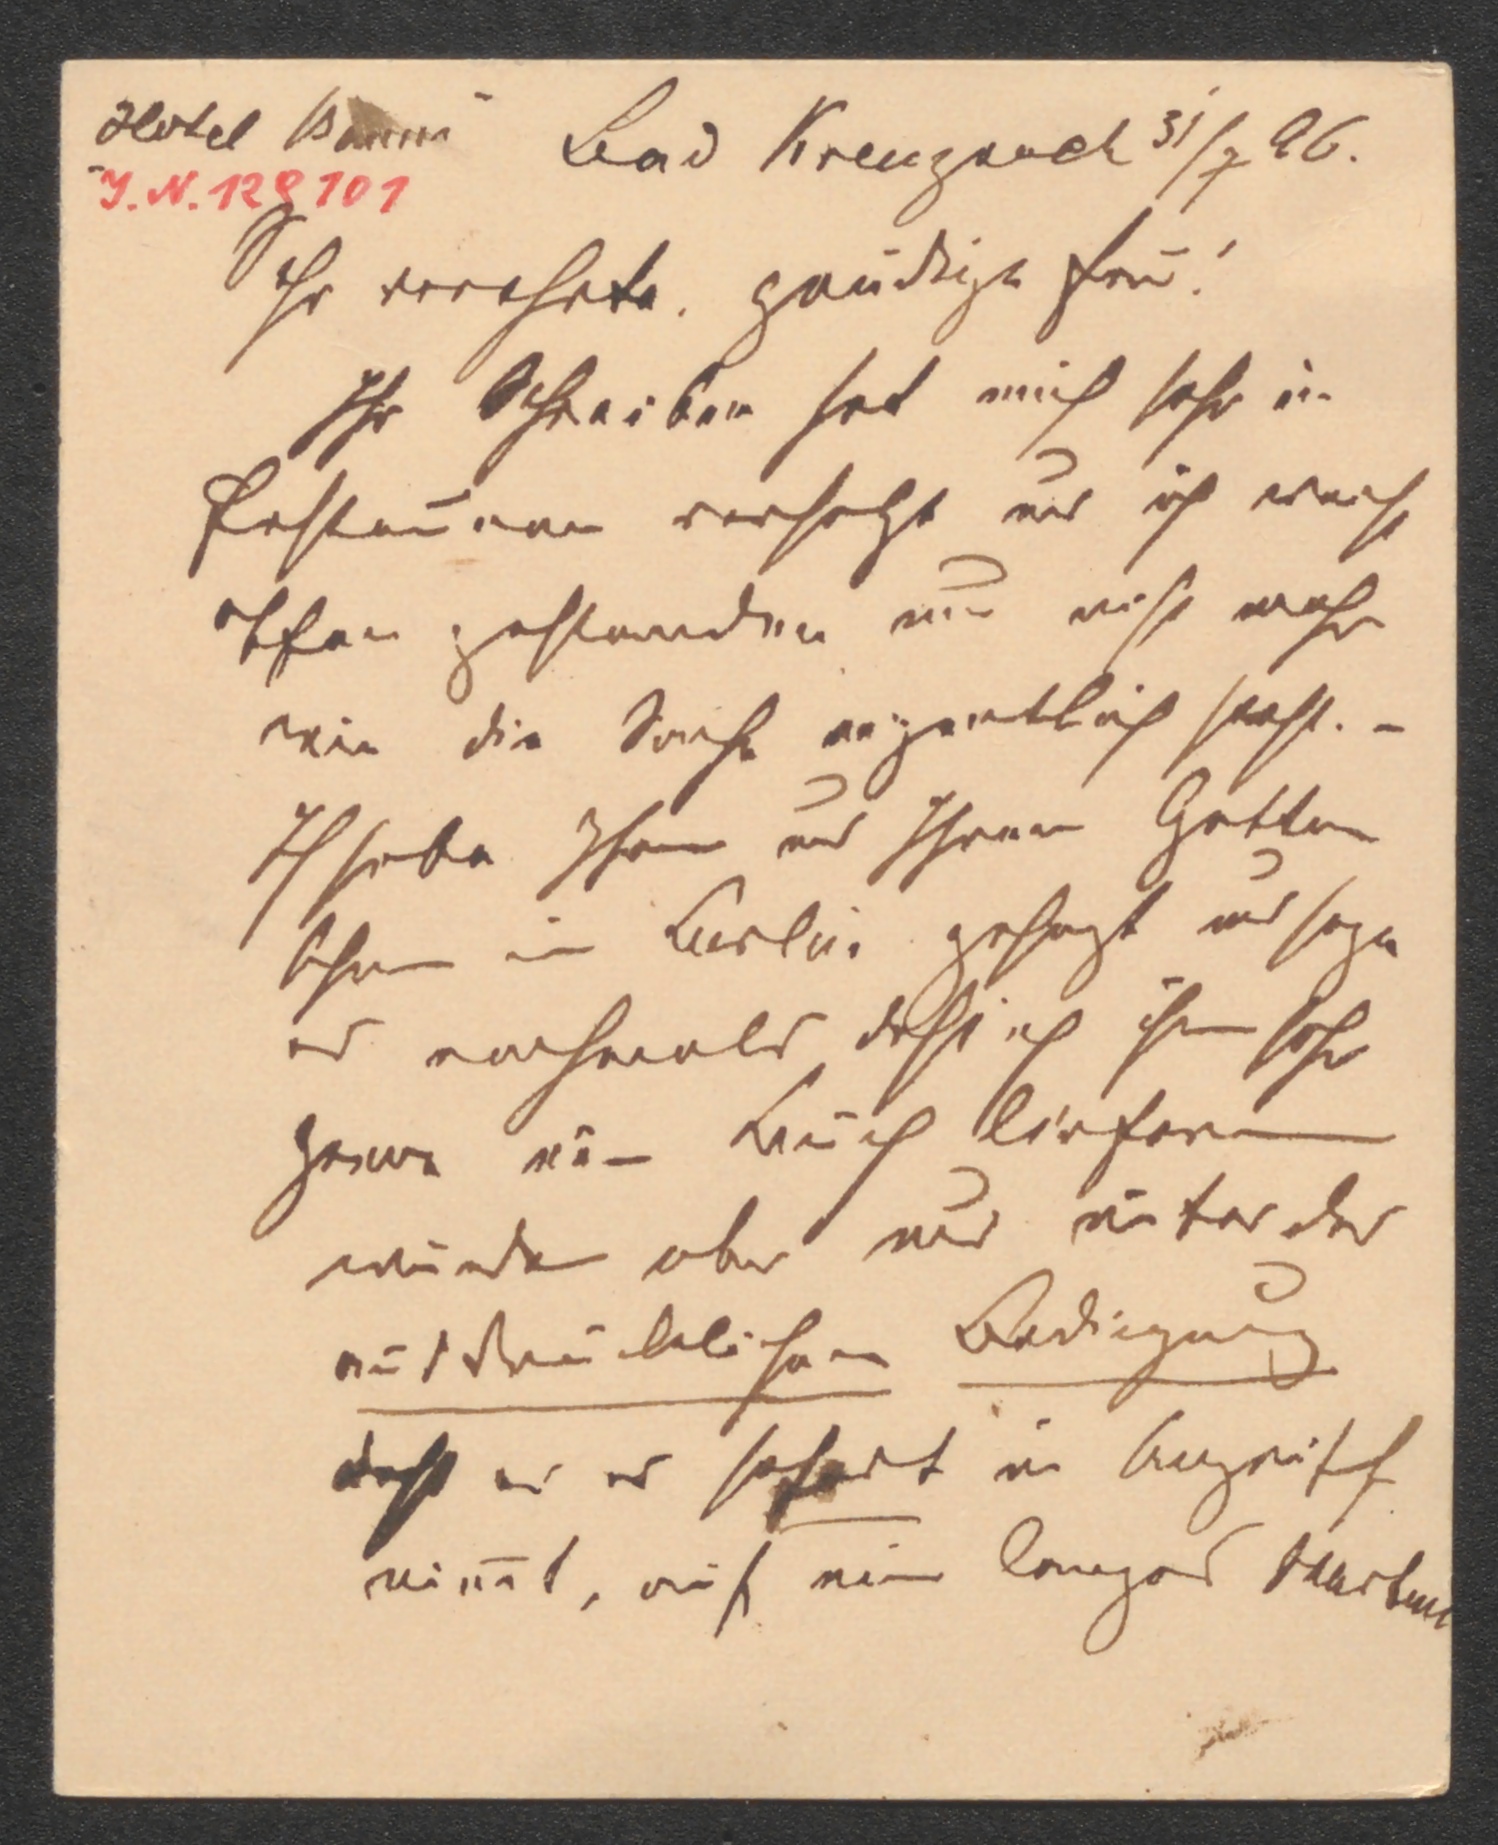 Hotel Baum Bad Kreuznach 31/7 96.
J.N. 128101
Sehr verehrte, gnädige Frau!
Ihr Schreiben hat mich sehr in
Erstaunen versetzt und ich weiß
offen gestanden nun nicht mehr
wie die Sache eigentlich steht. –
Ich habe Ihnen und Ihrem Gatten
schon in Berlin gesagt und sage
es nochmals, daß ich ihm sehr
gerne ein Buch liefern
würde aber nur unter der
ausdrücklichen Bedingung
daß er es sofort in Angriff
nim̄t, auf ein langes Warten